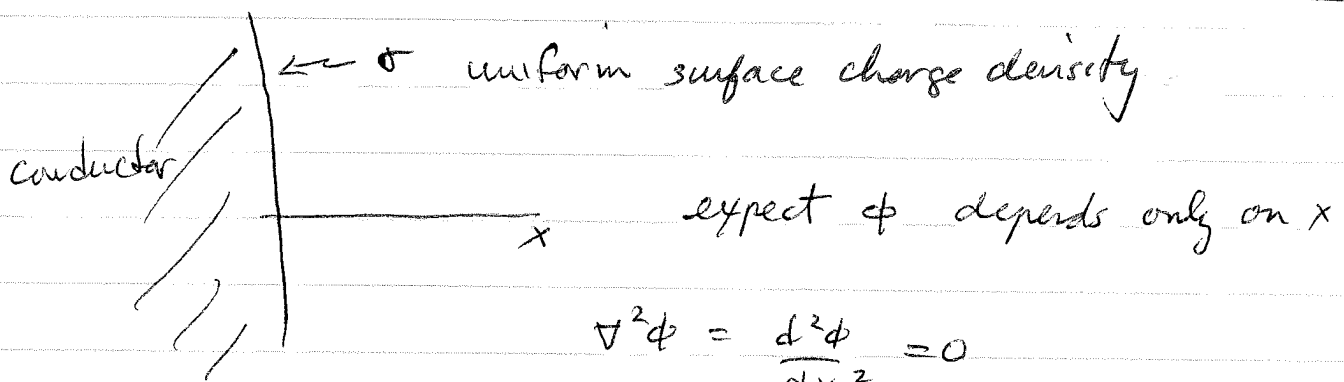 ← σ uniform surface charge density
conductor
x
expect ϕ depends only on x
∇²ϕ = d²ϕ/dx² = 0